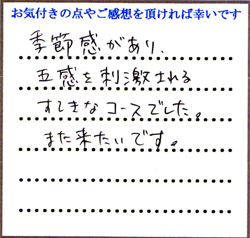 お気付きの点やご感想を頂ければ幸いです
季節感があり、
五感を刺激される
すてきなコースでした。
また来たいです。